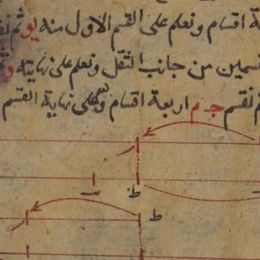 ة اقسام ونعلم على القسم الاول منه يو ثم نق
قسمين من جانب الثقل ونعلم على نهايته
ثم نقسم جم اربعة اقسام ونعلم على نهاية القسم
ط
ط